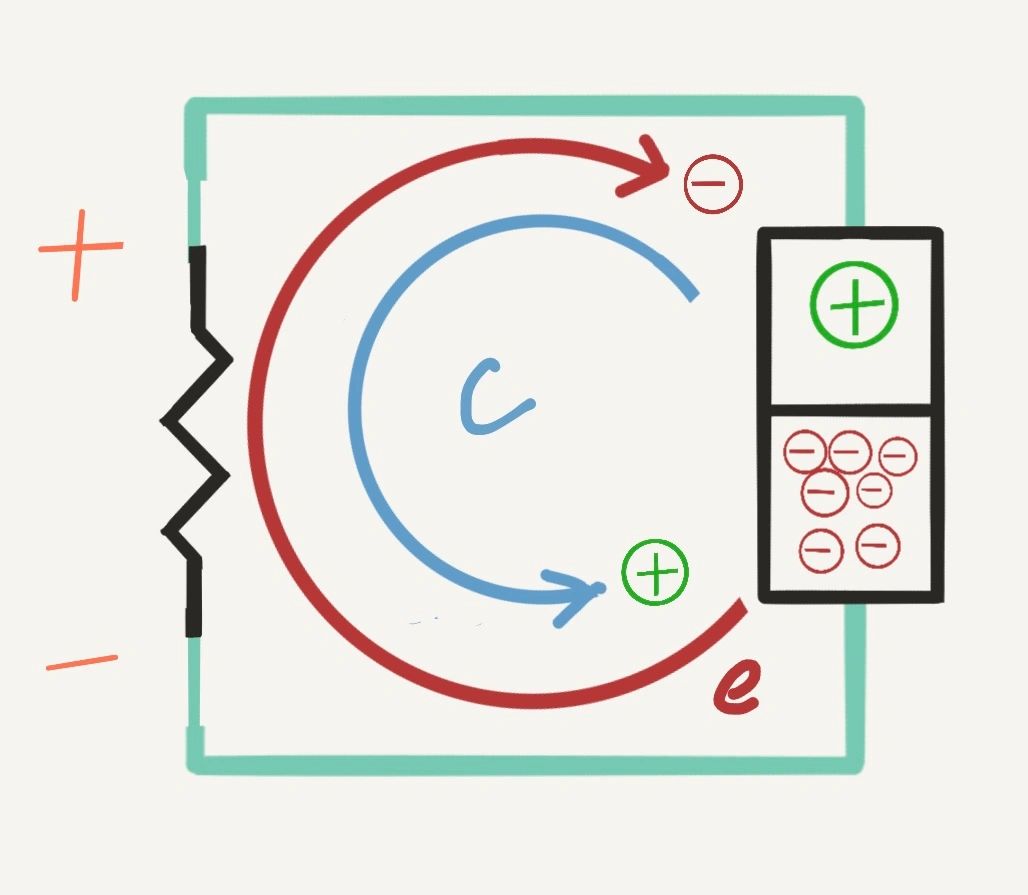 −
+
+
C
− − −
− −
− −
+
−
e